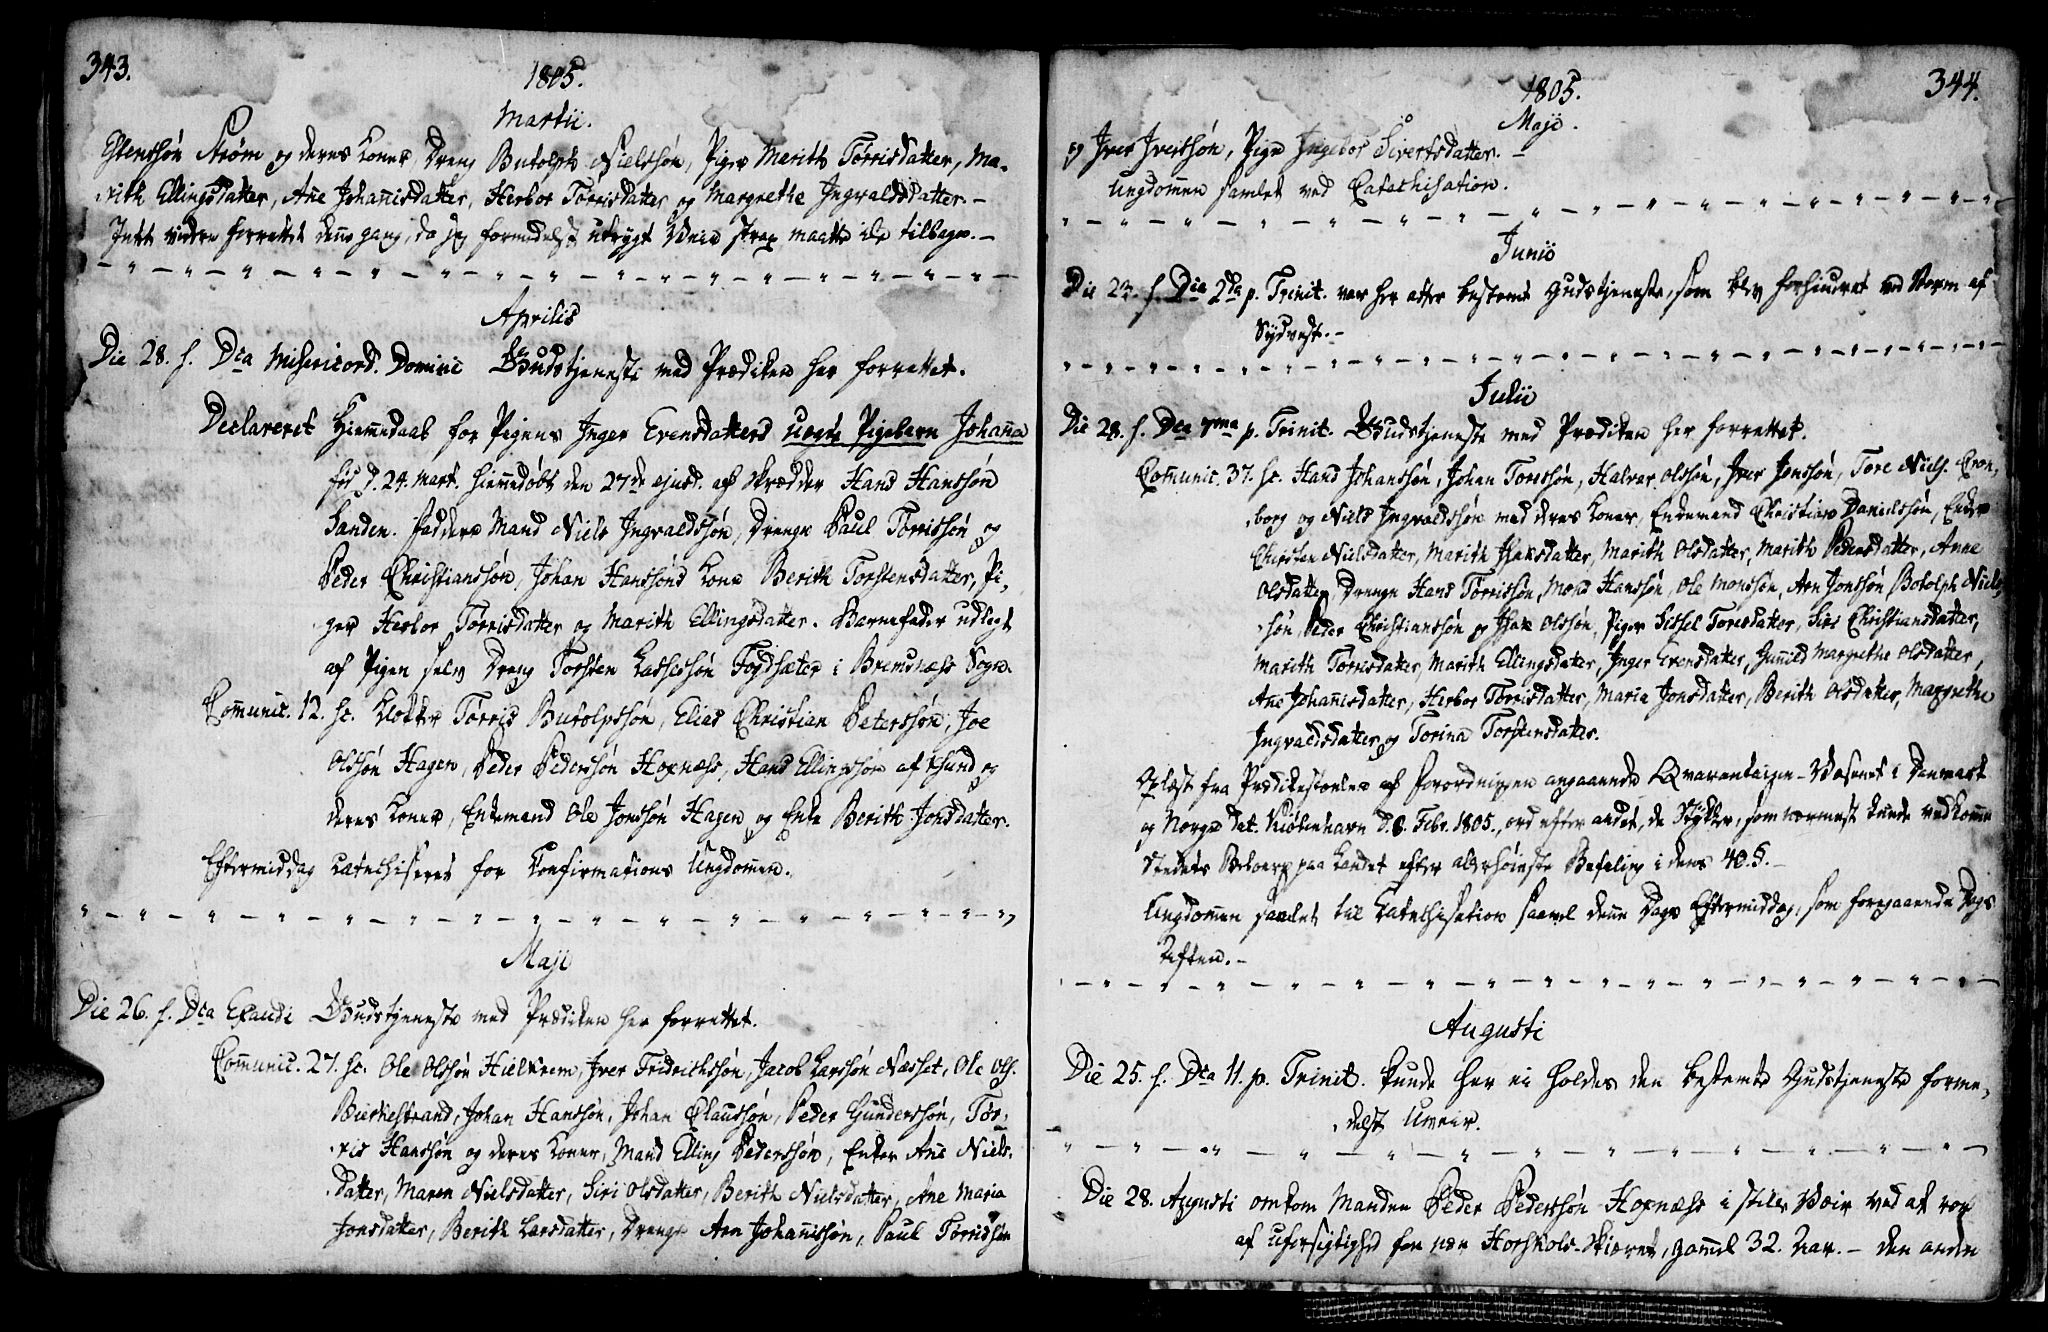 343.
1805.
Martii.
Stenssøn Strøm og deres Koner, Dreng Butolph Nielssøn, Piger Merith Tørrisdatter, Ma-
rith Ellingsdatter, Ane Johannisdatter, Herbor Tørrisdatter og Margrethe Ingvaldsdatter.-
Intet videre forrettet denne gang, da jeg formedelst utrygt Veir strax maatte ile tilbage.-
Aprilis
Die 28. s. Dca Misericord. Domini Gudstjeneste med Prædiken her forrettet.
Declareret Hjemmedaab for Pigens Inger Evensdatters uægte Pigebarn Johanna
fød d. 24. Mart. hjemmedøbt den 27de ejusd. af Skrædder Hans Hanssøn
Sanden. Faddere Mand Niels Ingvaldssøn, Drenge Paul Tørrissøn og
Peder Christianssøn, Johan Hanssøns Kone Berith Torstensdatter, Pi-
ger Herbor Tørrisdatter og Marith Ellingsdatter. Barnefader udlagt
af Pigen selv Dreng Torsten Lassessøn Fogdsæter i Bremsnæss Sogn.
Communic. 12. sc. Klokker Tørris Butolpssøn, Elias Christian Peterssøn, Joe
Olssøn Hagen, Peder Pederssøn Hopnæss, Hans Ellingssøn og
deres Koner, Enkemand Ole Jonssøn Hagen og Enke Berith Jonsdatter.
Eftermiddag Catechiseret for Confirmations Ungdommen.
Maji
Die 26. s. Dca Exaudi Gudstjeneste med Prædiken her forrettet.
Communic. 27. sc. Ole Olssøn Hielkrem, Iver Fridrichssøn, Jacob Larssøn Næsset, Ole Ols.
Birkestrand, Johan Hanssøn, Johan Claussøn, Peder Gunderssøn, Tør-
ris Hanssøn og deres Koner, Mand Elling Pederssøn, Enker Ane Niels-
datter, Maren Nielsdatter, Siri Olsdatter, Berith Nielsdatter, Ane Maria
Jonsdatter, Berith Larsdatter, Drenge Arn Johannissøn, Paul Tørrissøn
344.
1805.
Maji.
og Iver Iverssøn, Pige Ingebor Sivertsdatter.-
Ungdommen samlet ved Catechisation.
Junii
Die 23. s. Dca 2da p. Trinit. var her atter bestemt Gudstjeneste, som blev forhindret ved Storm af
Sydvest.-
Julii
Die 28. s. Dca 7ma p. Trinit. Gudstjeneste med Prædiken her forrettet.
Communic. 37. sc. Hans Johanssøn, Johan Toressøn, Halvor Olssøn, Iver Jonssøn, Tore Niels.
borg og Niels Ingvaldssøn med deres Koner, Enkemand Christian Danielssøn, Enker
Chirsten Nielsdatter, Marith Isaksdatter, Marith Olsdatter, Marith Pedersdatter, Anne
Olsdatter, Drenge Hans Tørrissøn, Mons Hanssøn, Ole Monssøn, Arn Jonssøn, Botolph Niels-
søn, Peder Christianssøn og Isak Olssøn, Piger Sissel Toresdatter, Siri Christiansdatter,
Marith Tørrisdatter, Marith Ellingsdatter, Inger Evensdatter, Gunild Margrethe Olsdatter,
Ane Johannisdatter, Herbor Tørrisdatter, Maria Jonsdatter, Berith Olsdatter, Margrethe
Ingvaldsdatter og Torina Torstensdatter.
Oplæst fra Prædikestolen af Forordningen angaaende Qvarantaine-Væsenet i Danmark
og Norge dat. Kiøbenhavn d. 8. Febr. 1805., ord efter andet, de Stykker, som nærmest kunde vedkomme
Stedets paa Landet efter allerhøieste Befaling i dens 40. §.-
Ungdommen samlet til Catechisation saavel denne Dags Eftermiddag, som foregaaende Dags
Aften.-
Augusti
Die 25. s. Dca 11. p. Trinit. kunde her ei holdes den bestemte Gudstjeneste forme-
delst Uveir.
Die 28. Augusti omkom Manden Peder Pederssøn Hopnæss i stille Veir ved at roe
af uforsigtighed for nær Skiæret, gammel 32. Aar.- den anden